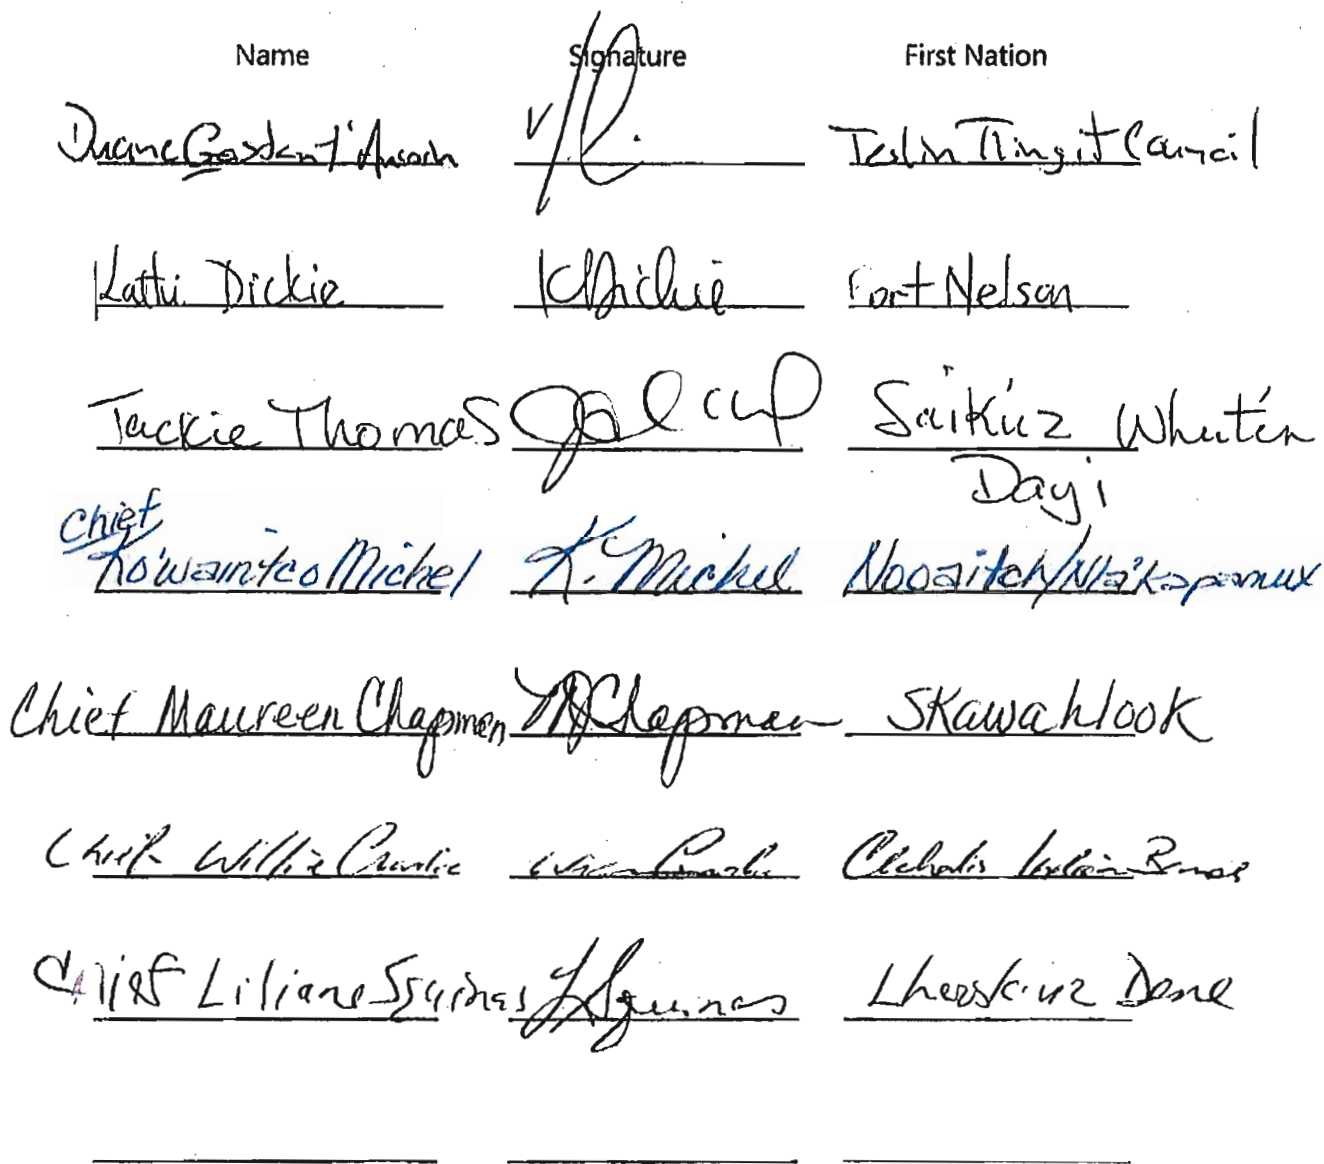 Name Signature First Nation
Duane Gastant' Aucoin Teslin Tlingit Council
Kathi Dickie KDickie Fort Nelson
Jackie Thomas Saik'uz Whut'en
Dayi
Chief
Ko'waintco Michel K. Michel Nooaitch/Nla'kapamux
Chief Maureen Chapman MChapman SKawahlook
Chief Willie Charlie Chehalis Indian Band
Chief Liliane Squinas LSquinas Lhoosk'uz Dene